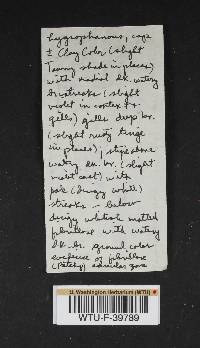 hygrophanous, cap
± Clay Color (slight
Tawny shade in places)
with radial dk. watery
br. streaks (slight
violet in cortex &
gills) gills deep br.
(slight rusty tinge
in places); stipe above
watery dk. br. (slight
violet cast) with
pale (dingy white)
streaks - below
dingy whitish matted
fibrillose with watery
dk. br. ground color
evidence of fibrillose
(patchy) annular zone
U. Washington Herbarium (WTU)
WTU-F-39789